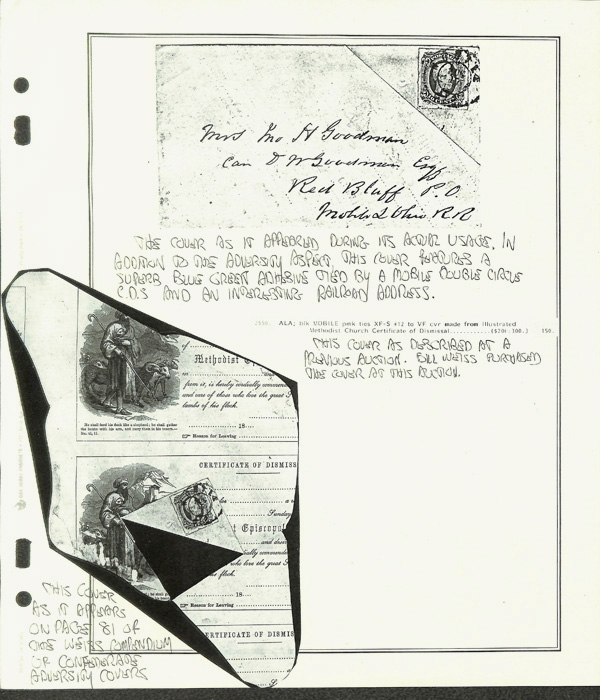 Mrs Jno H Goodman
Care D W Goodman Esq
Red Bluff P.O.
Mobile & Ohio R.R
THE COVER AS IT APPEARED DURING ITS ACTUAL USAGE. IN
ADDITION TO THE ADVERSITY ASPECT, THIS COVER FEATURES A
SUPERB BLUE GREEN ADHESIVE TIED BY A MOBILE DOUBLE CIRCLE
C.D.S AND AN INTERESTING RAILROAD ADDRESS.
ALA; blk MOBILE pmk ties XF-S #12 to VF cvr made from Illustrated
Methodist Church Certificate of Dismissal............($200.-300.) 150..
THIS COVER AS DESCRIBED AT A
PREVIOUS AUCTION. BILL WEISS PURCHASED
THE COVER AT THIS AUCTION.
Methodist
from it, is hereby cordially commen
and care of those who love the great S
lambs of his flock.
He shall feed his flock like a shepherd; he shall gather
the lambs with his arm, and carry them in his bosom.—
18
Reason for Leaving
CERTIFICATE OF DISMISS
Sunday
Episcop
and desi
dially commende
who love the great S
his flock.
18
Reason for Leaving
ERTIFICATE OF DISMIS
THIS COVER
AS IT APPEARS
ON PAGE 81 OF
THE WEISS COMPENDIUM
OF CONFEDERATE
ADVERSITY COVERS